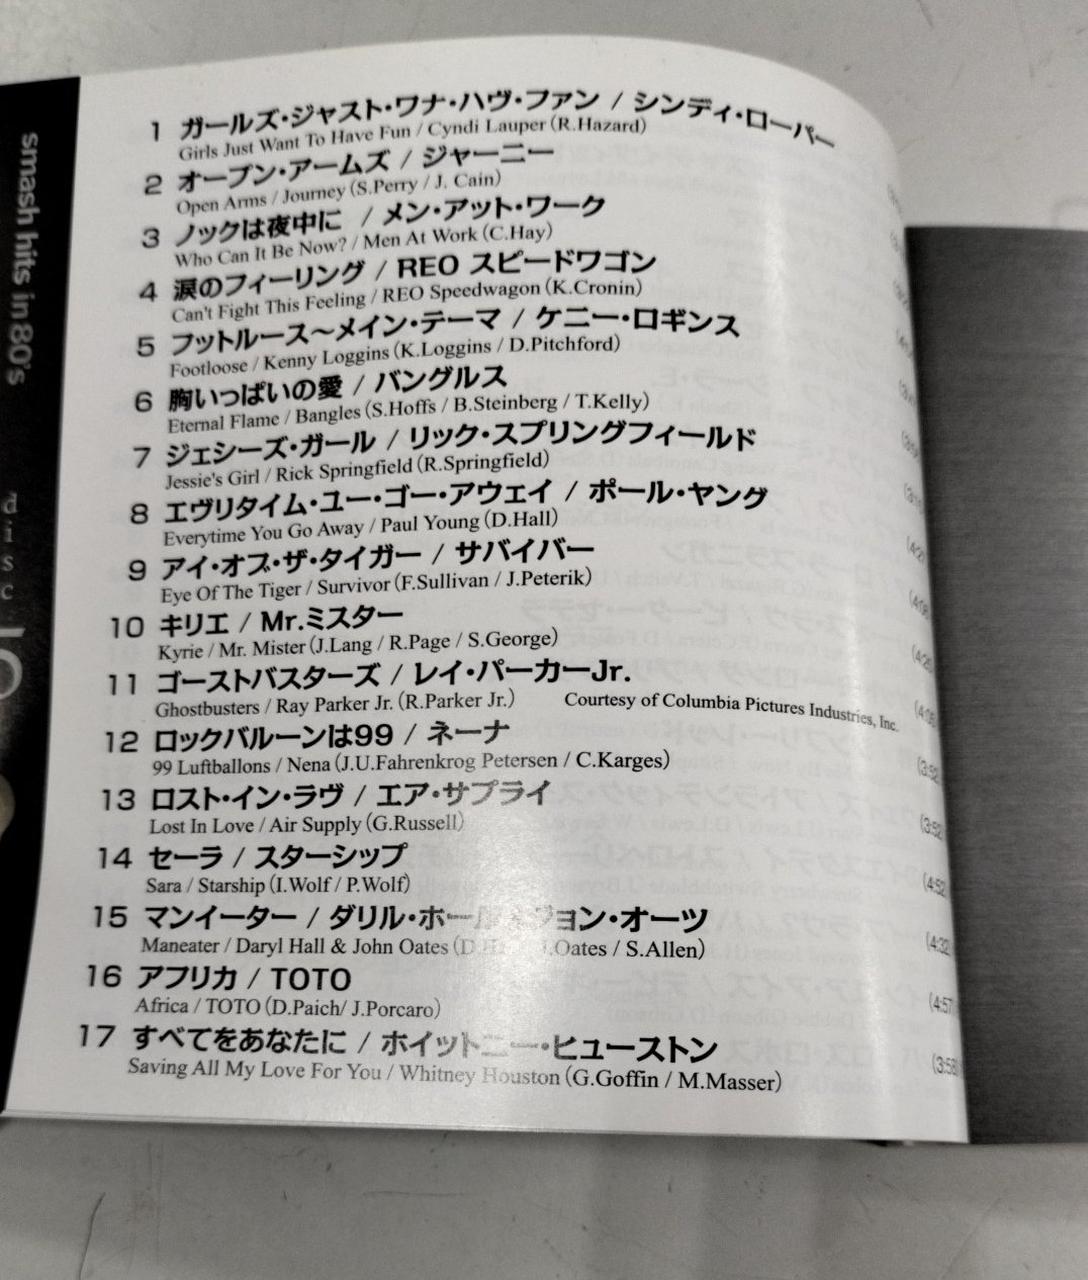 smash hits in 80's
disc
1 ガールズ・ジャスト・ワナ・ハヴ・ファン / シンディ・ローパー
Girls Just Want To Have Fun / Cyndi Lauper (R.Hazard)
2 オープン・アームズ / ジャーニー
Open Arms / Journey (S.Perry / J. Cain)
3 ノックは夜中に / メン・アット・ワーク
Who Can It Be Now? / Men At Work (C.Hay)
4 涙のフィーリング / REO スピードワゴン
Can't Fight This Feeling / REO Speedwagon (K.Cronin)
5 フットルース〜メイン・テーマ / ケニー・ロギンス
Footloose / Kenny Loggins (K.Loggins / D.Pitchford)
6 胸いっぱいの愛 / バングルス
Eternal Flame / Bangles (S.Hoffs / B.Steinberg / T.Kelly)
7 ジェシーズ・ガール / リック・スプリングフィールド
Jessie's Girl / Rick Springfield (R.Springfield)
8 エヴリタイム・ユー・ゴー・アウェイ / ポール・ヤング
Everytime You Go Away / Paul Young (D.Hall)
9 アイ・オブ・ザ・タイガー / サバイバー
Eye Of The Tiger / Survivor (F.Sullivan / J.Peterik)
10 キリエ / Mr.ミスター
Kyrie / Mr. Mister (J.Lang / R.Page / S.George)
11 ゴーストバスターズ / レイ・パーカーJr.
Ghostbusters / Ray Parker Jr. (R.Parker Jr.) Courtesy of Columbia Pictures Industries, Inc.
12 ロックバルーンは99 / ネーナ
99 Luftballons / Nena (J.U.Fahrenkrog Petersen / C.Karges) (3:52)
13 ロスト・イン・ラヴ / エア・サプライ
Lost In Love / Air Supply (G.Russell) (3:52)
14 セーラ / スターシップ
Sara / Starship (I.Wolf / P.Wolf) (4:52)
15 マンイーター / ダリル・ホール・ジョン・オーツ
Maneater / Daryl Hall & John Oates (D.H J.Oates / S.Allen) (4:32)
16 アフリカ / TOTO
Africa / TOTO (D.Paich/ J.Porcaro) (4:57)
17 すべてをあなたに / ホイットニー・ヒューストン
Saving All My Love For You / Whitney Houston (G.Goffin / M.Masser) (3:58)